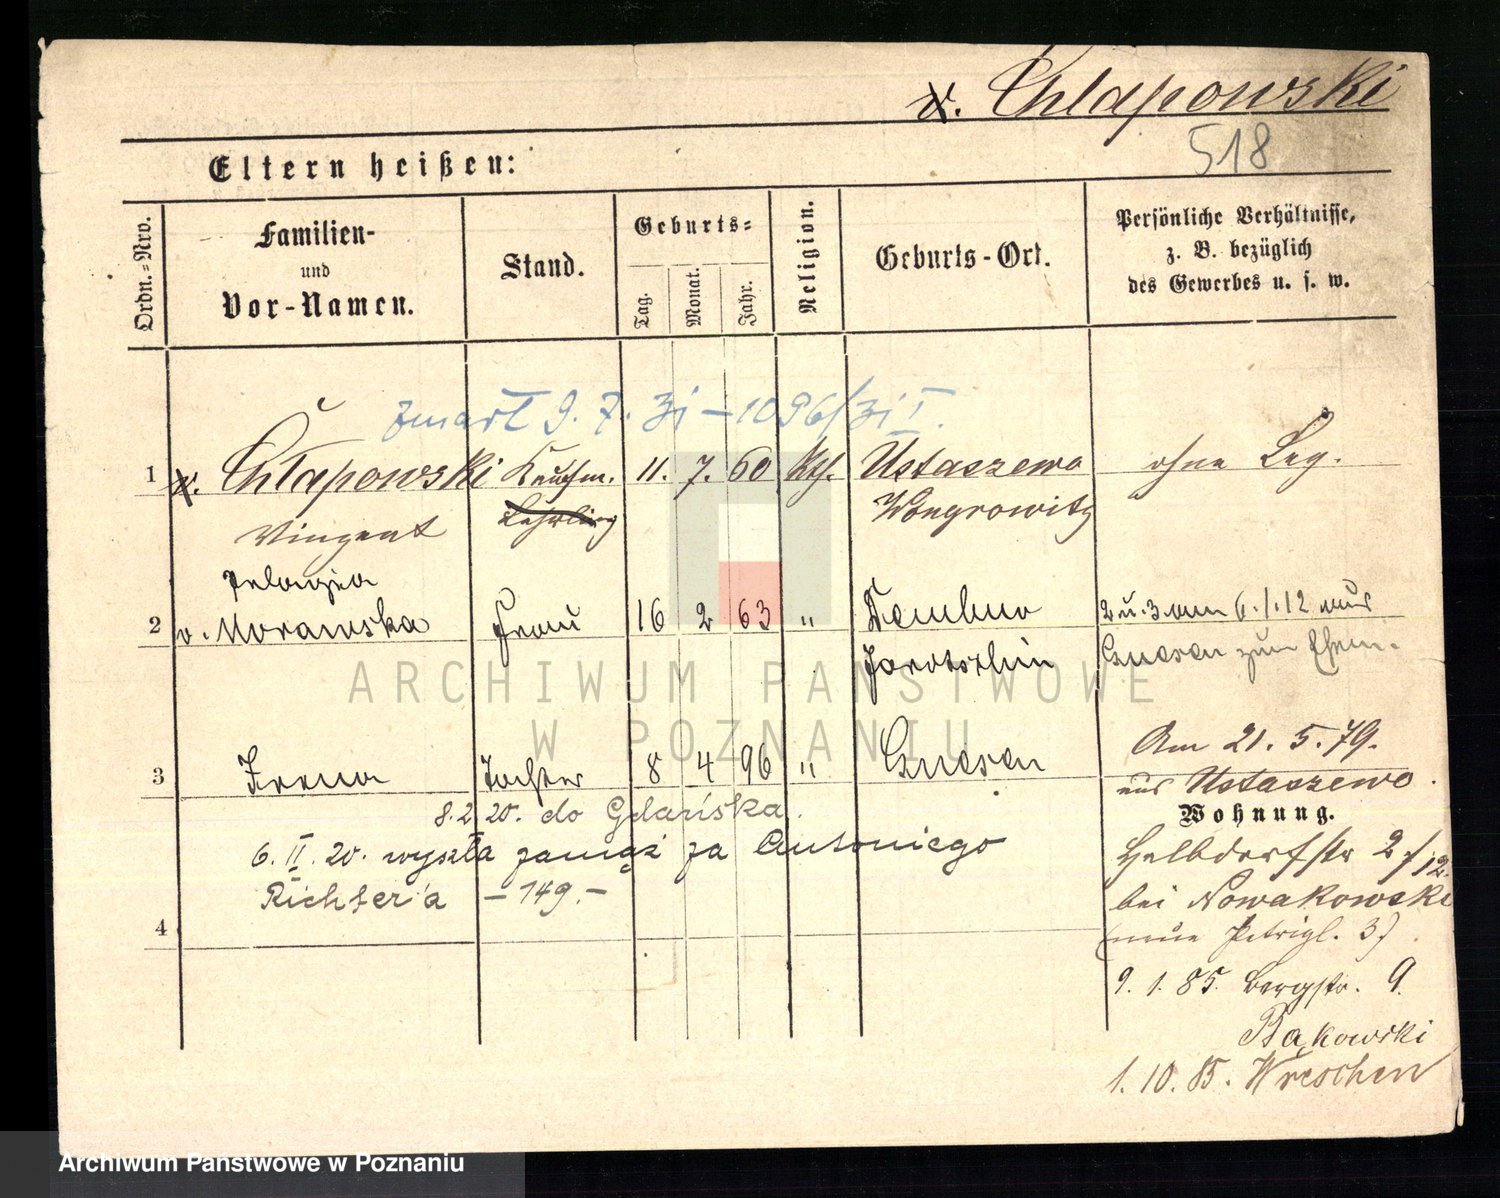 v. Chłapowski
518
Eltern heißen:
Ordn.=Nro.
Familien-
und
Vor-Namen.
Stand.
Geburts=
Tag.
Monat.
Jahr.
Religion.
Geburts-Ort.
Persönliche Verhältnisse,
z. B. bezüglich
des Gewerbes u. s. w.
zmarł 9. 7. 31 – 1096/31 I.
1 v. Chłapowski Kaufm. 11. 7. 60 Kth. Ustaszewo ohne Leg.
Vinzent Lehrling Wongrowitz
Pelagia
2 v. Morawska Frau 16 2 63 " Dembno 2 u. 3 am 6.1.12 aus
Jarotschin Gnesen zum Ehem.
3 Irena Tochter 8 4 96 " Gnesen
Am 21. 5. 79.
aus Ustaszewo.
Wohnung.
8.2.20. do Gdańska.
6. II. 20. wyszła zamąż za Antoniego
Richter'a – 149. –
4
Halbdorfstr 2/12.
bei Nowakowski
(neue Petrigl. 3)
9. 1. 85. Bergstr. 9.
Bąkowski
1. 10. 85. Wreschen
ARCHIWUM PAŃSTWOWE
W POZNANIU
Archiwum Państwowe w Poznaniu